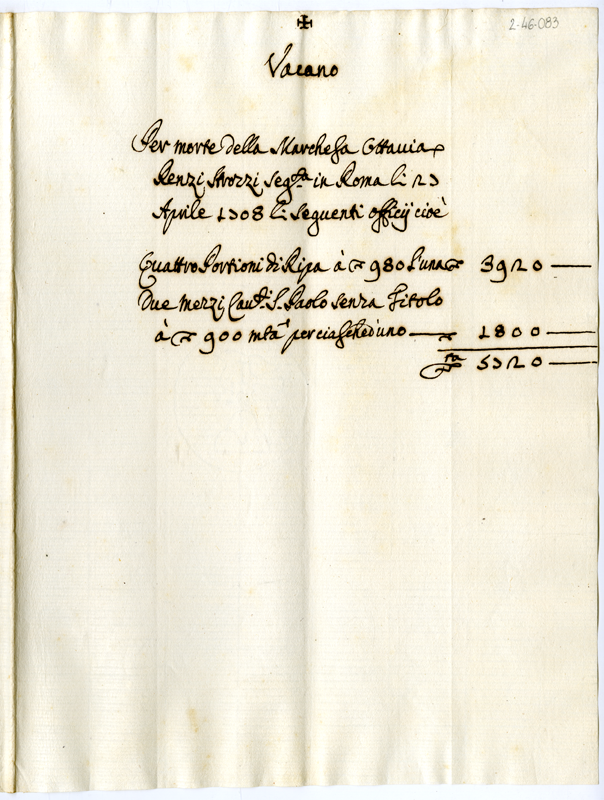 ✠
2-46-083
Vacano
Per morte della Marchesa Ottavia
Renzi Strozzi seg.ta in Roma li 23
Aprile 1708 li seguenti officij cioè
Quattro Portioni di Ripa à ∇ 980 l'una ∇ 3920 —
Due mezzi Cau.ti S. Paolo senza Titolo
à ∇ 900 mtà per ciascheduno — ∇ 1800 —
∇ta 5720 —